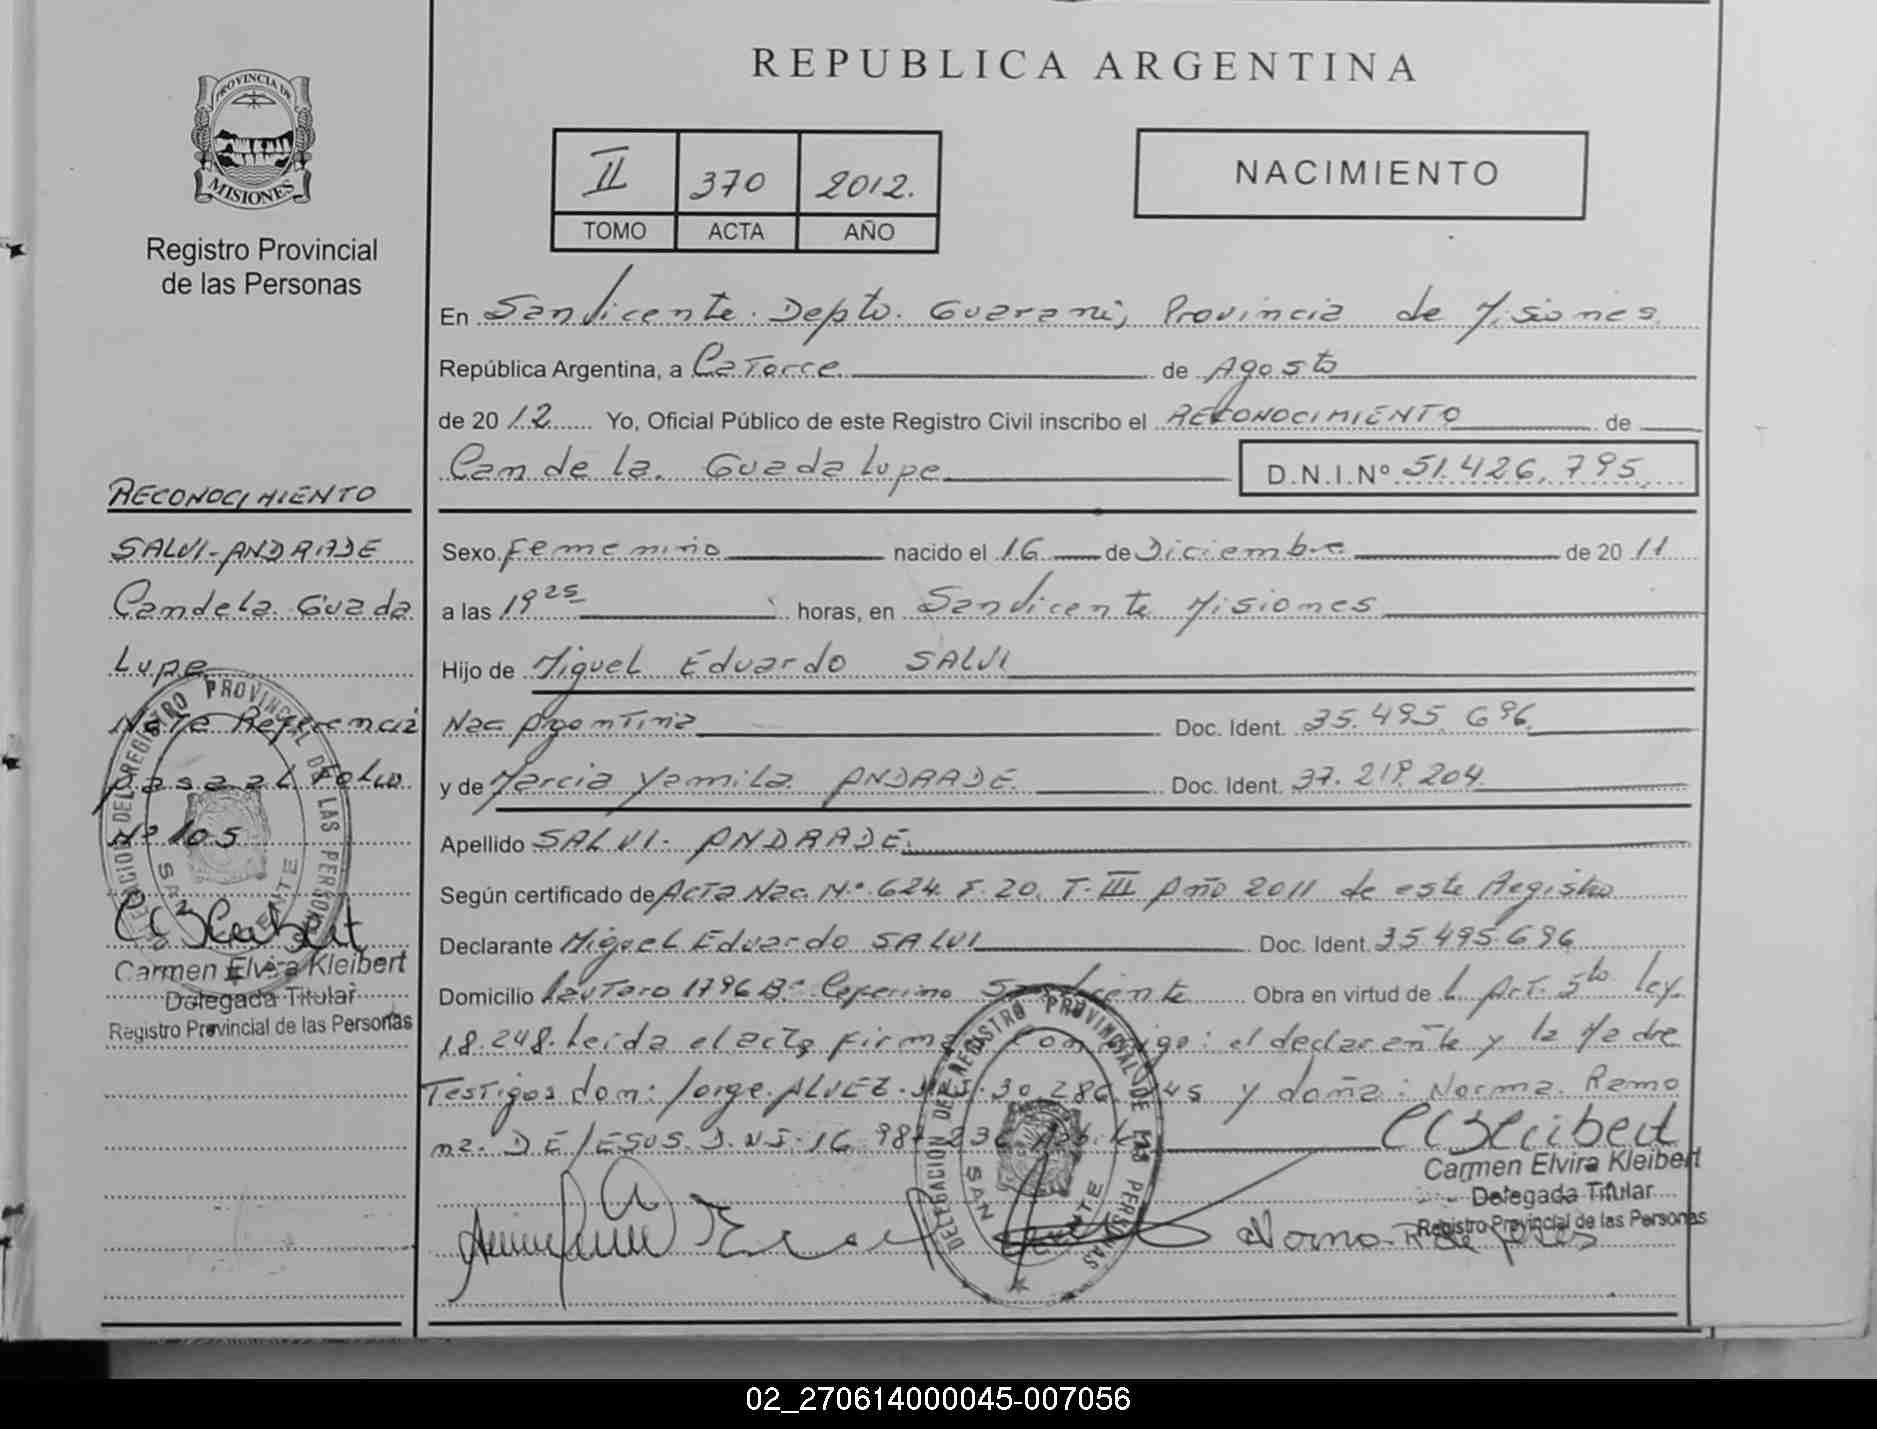 REPUBLICA ARGENTINA
PROVINCIA DE
MISIONES
Registro Provincial
de las Personas
II 370 2012.
TOMO ACTA AÑO
NACIMIENTO
En San Vicente. Depto. Guarani, Provincia de Misiones
República Argentina, a Catorce de Agosto
de 2012 Yo, Oficial Público de este Registro Civil inscribo el RECONOCIMIENTO de
Candela. Guadalupe D.N.I.Nº 51.426.795
Sexo Femenino nacido el 16 de Diciembre de 2011
a las 19 25 horas, en San Vicente Misiones
Hijo de Miguel Eduardo SALVI
Nac Argentina Doc. Ident. 35.495.696
y de Marcia Yamila ANDRADE. Doc. Ident. 37.219.204
Apellido SALVI- ANDRADE.
Según certificado de Acta Nac. Nº 624. F. 20. T. III Año 2011 de este Registro
Declarante Miguel Eduardo SALVI Doc. Ident. 35.495.696
Domicilio Lautaro 1796 Bº Ceferino San Vicente Obra en virtud de L Art. 5to Ley.
18.248. Leida el acta firman conmigo: el declarante y la Madre
Testigos don: Jorge ALVEZ D.N.I. 30.286. y doña: Norma. Ramo
na. DE JESUS. D.N.I. 16.987.
RECONOCIMIENTO
SALVI-ANDRADE
Candela. Guada
Lupe
Nota Referencia
pasa al Folio
Nº 105
Carmen Elvira Kleibert
Delegada Titular
Registro Provincial de las Personas
DELEGACION DEL REGISTRO PROVINCIAL DE LAS PERSONAS
SAN VICENTE
Carmen Elvira Kleibert
Delegada Titular
Registro Provincial de las Personas
DELEGACION DEL REGISTRO PROVINCIAL DE LAS PERSONAS
SAN VICENTE
Norma R de Jesus
02_270614000045-007056